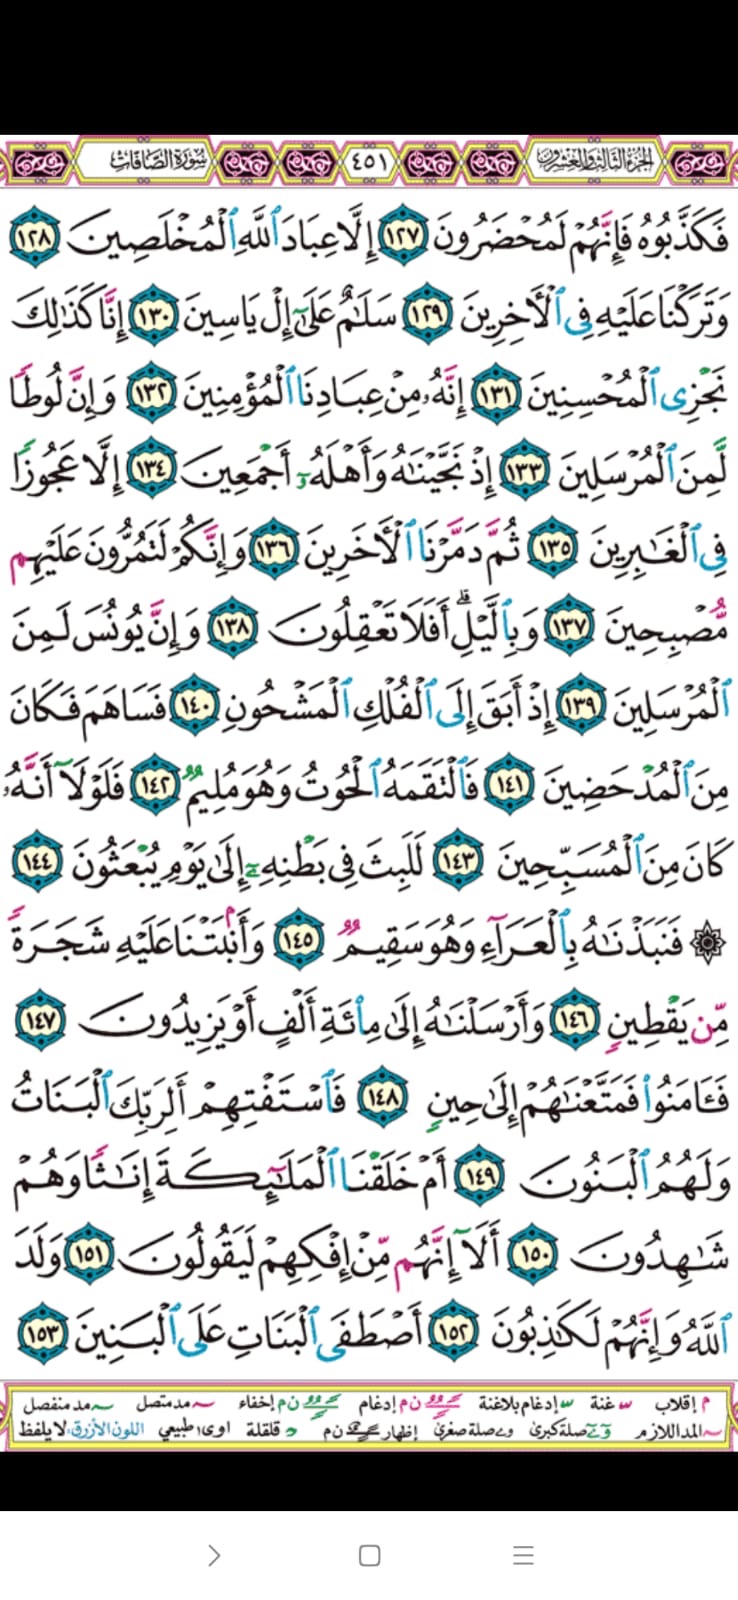 سُورَةُ الصَّافَّاتِ ٤٥١ الجُزءُ الثَّالِثُ وَالعِشْرُونَ
فَكَذَّبُوهُ فَإِنَّهُمْ لَمُحْضَرُونَ ١٢٧ إِلَّا عِبَادَ ٱللَّهِ ٱلْمُخْلَصِينَ ١٢٨
وَتَرَكْنَا عَلَيْهِ فِى ٱلْأٓخِرِينَ ١٢٩ سَلَـٰمٌ عَلَىٰٓ إِلْ يَاسِينَ ١٣٠ إِنَّا كَذَٰلِكَ
نَجْزِى ٱلْمُحْسِنِينَ ١٣١ إِنَّهُۥ مِنْ عِبَادِنَا ٱلْمُؤْمِنِينَ ١٣٢ وَإِنَّ لُوطًا
لَّمِنَ ٱلْمُرْسَلِينَ ١٣٣ إِذْ نَجَّيْنَـٰهُ وَأَهْلَهُۥٓ أَجْمَعِينَ ١٣٤ إِلَّا عَجُوزًا
فِى ٱلْغَـٰبِرِينَ ١٣٥ ثُمَّ دَمَّرْنَا ٱلْأٓخَرِينَ ١٣٦ وَإِنَّكُمْ لَتَمُرُّونَ عَلَيْهِم
مُّصْبِحِينَ ١٣٧ وَبِٱلَّيْلِ ۗ أَفَلَا تَعْقِلُونَ ١٣٨ وَإِنَّ يُونُسَ لَمِنَ
ٱلْمُرْسَلِينَ ١٣٩ إِذْ أَبَقَ إِلَى ٱلْفُلْكِ ٱلْمَشْحُونِ ١٤٠ فَسَاهَمَ فَكَانَ
مِنَ ٱلْمُدْحَضِينَ ١٤١ فَٱلْتَقَمَهُ ٱلْحُوتُ وَهُوَ مُلِيمٌ ١٤٢ فَلَوْلَآ أَنَّهُۥ
كَانَ مِنَ ٱلْمُسَبِّحِينَ ١٤٣ لَلَبِثَ فِى بَطْنِهِۦٓ إِلَىٰ يَوْمِ يُبْعَثُونَ ١٤٤
۞ فَنَبَذْنَـٰهُ بِٱلْعَرَآءِ وَهُوَ سَقِيمٌ ١٤٥ وَأَنۢبَتْنَا عَلَيْهِ شَجَرَةً
مِّن يَقْطِينٍ ١٤٦ وَأَرْسَلْنَـٰهُ إِلَىٰ مِا۟ئَةِ أَلْفٍ أَوْ يَزِيدُونَ ١٤٧
فَـَٔامَنُوا۟ فَمَتَّعْنَـٰهُمْ إِلَىٰ حِينٍ ١٤٨ فَٱسْتَفْتِهِمْ أَلِرَبِّكَ ٱلْبَنَاتُ
وَلَهُمُ ٱلْبَنُونَ ١٤٩ أَمْ خَلَقْنَا ٱلْمَلَـٰٓئِكَةَ إِنَـٰثًا وَهُمْ
شَـٰهِدُونَ ١٥٠ أَلَآ إِنَّهُم مِّنْ إِفْكِهِمْ لَيَقُولُونَ ١٥١ وَلَدَ
ٱللَّهُ وَإِنَّهُمْ لَكَـٰذِبُونَ ١٥٢ أَصْطَفَى ٱلْبَنَاتِ عَلَى ٱلْبَنِينَ ١٥٣
م إقلاب غنة إدغام بلاغنة ن م إدغام ن م إخفاء مد متصل مد منفصل
المد اللازم صلة كبرى صلة صغرى إظهار ن م قلقلة اوى طبيعي اللون الأزرق لا يلفظ